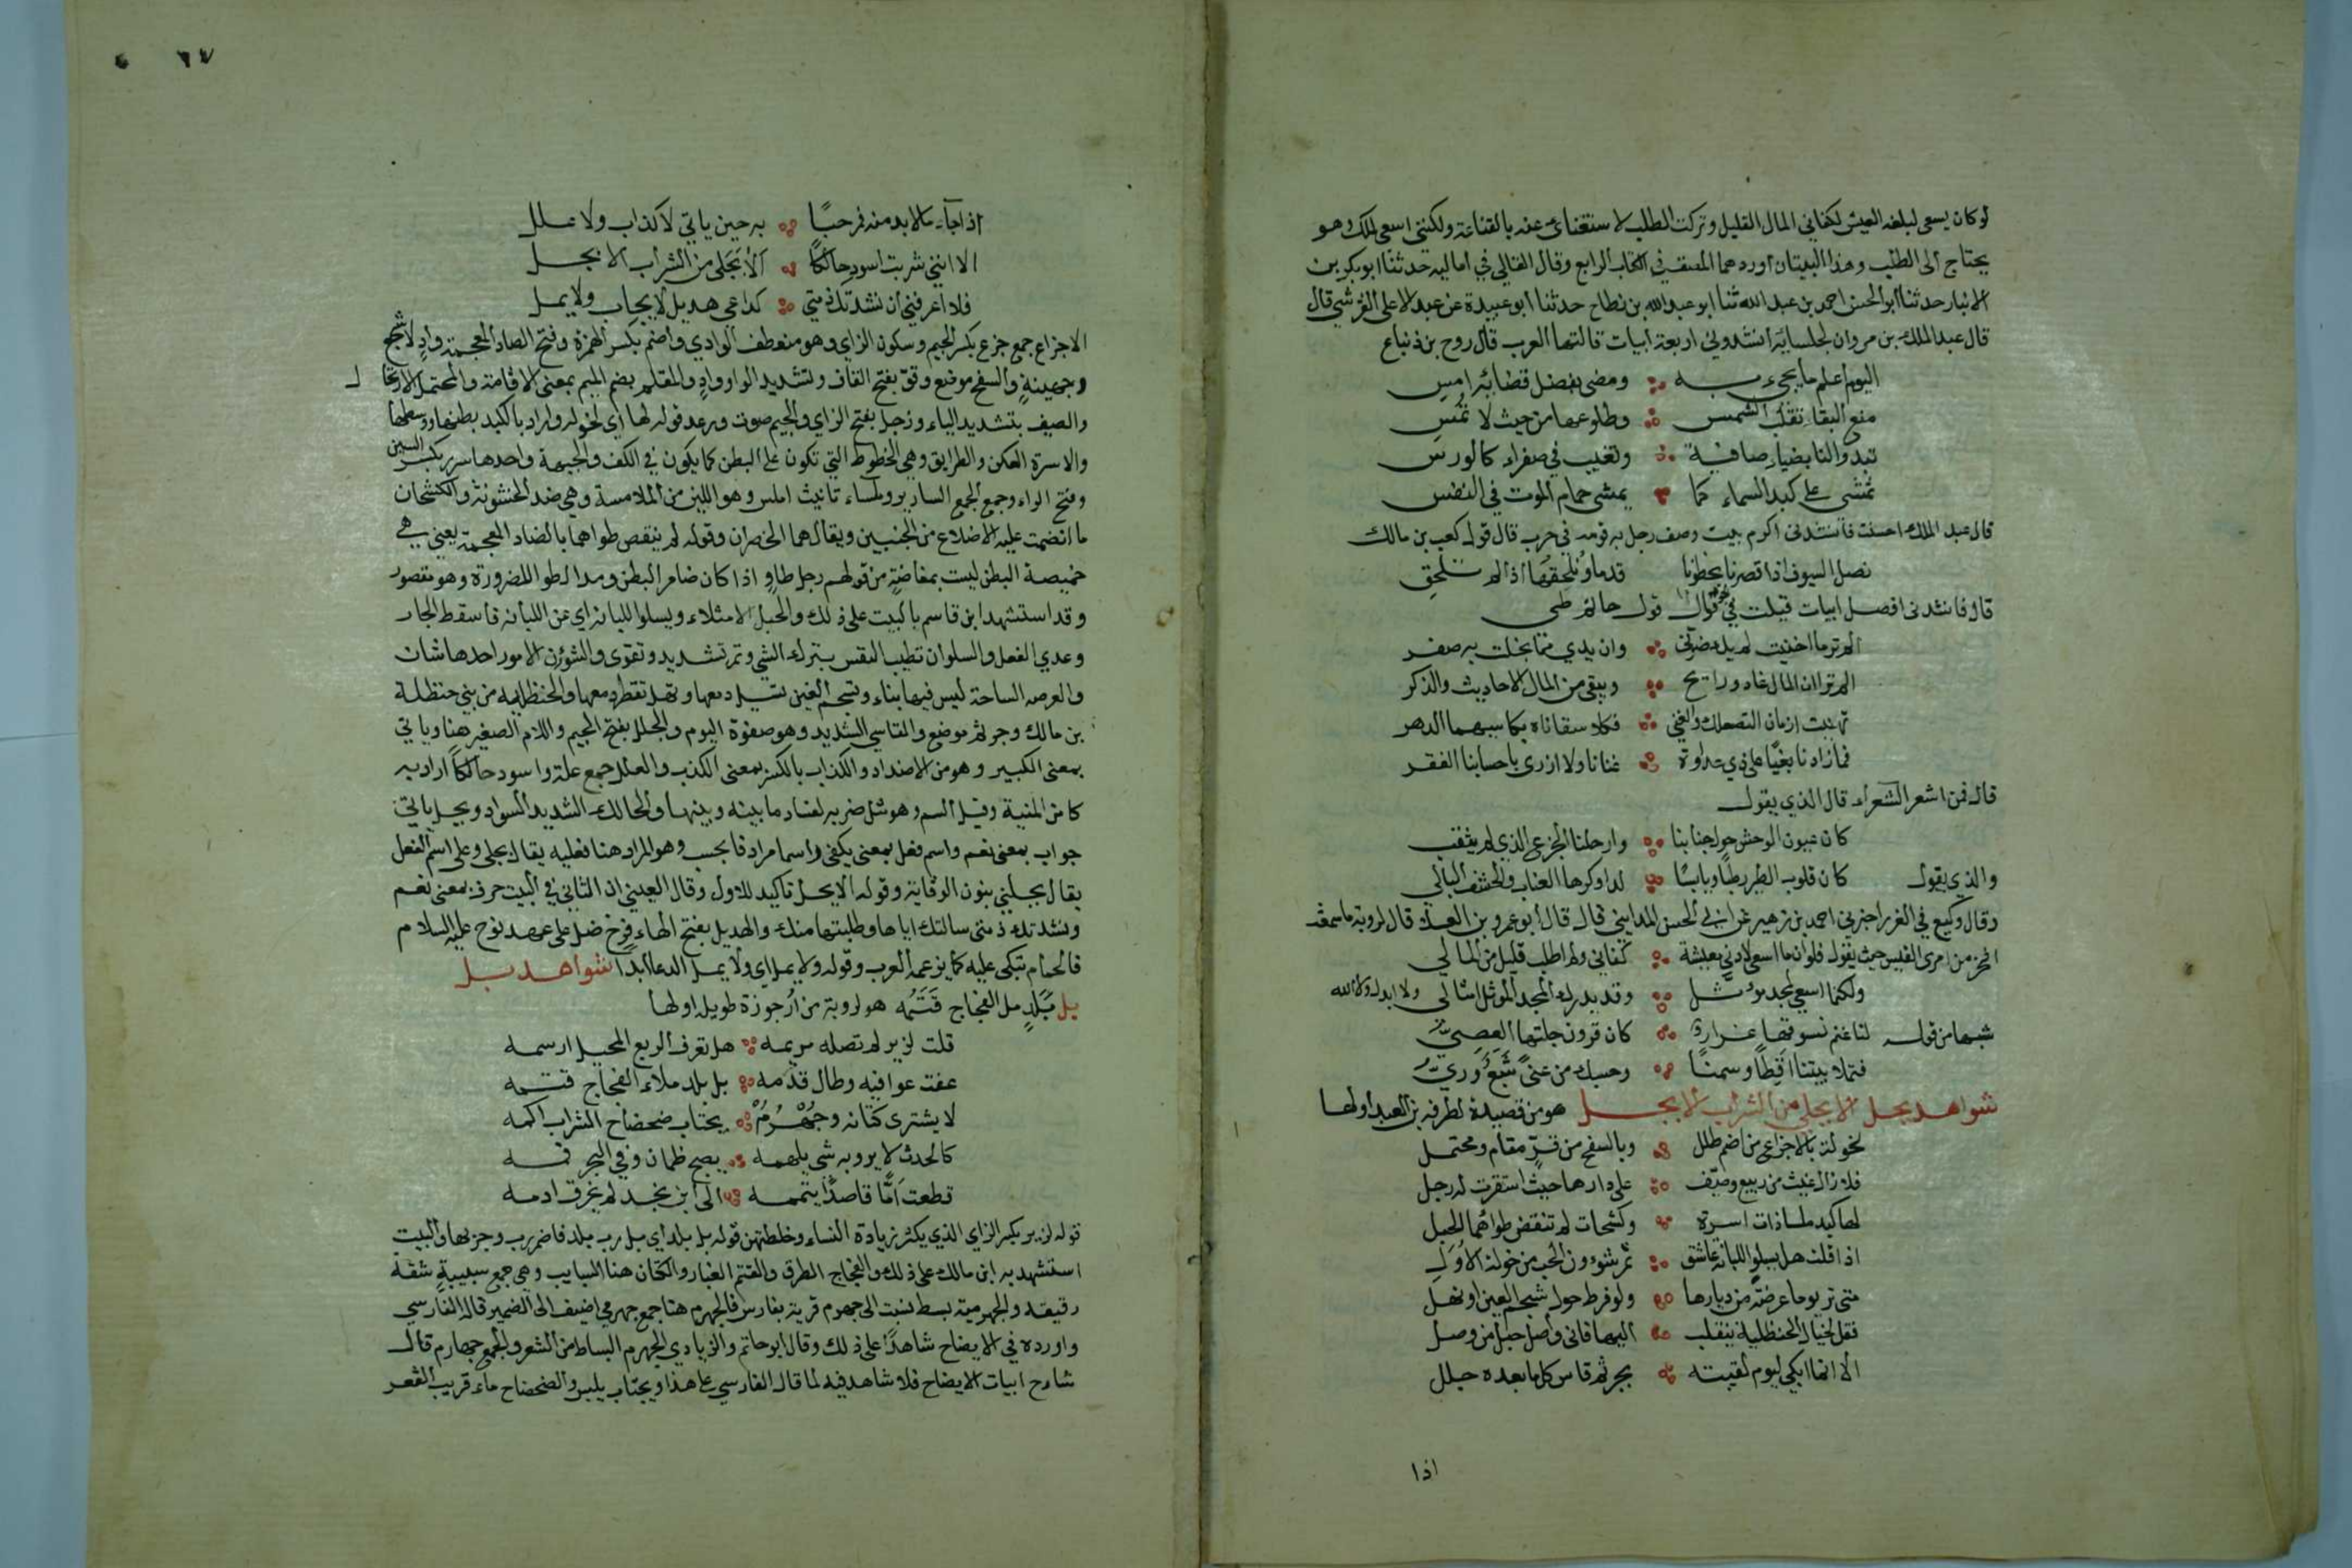 لو كان يسعى لبلغه العيش لكفاني المال القليل وتركت الطلب لاستغناى عنه بالقناعة ولكننى اسعى لملك وهو
يحتاج الى الطلب وهذا البيتان اوردهما المصنف في الكتاب الرابع وقال القالي في اماليه حدثنا ابو بكر بن
الانبار حدثنا ابو الحسن احمد بن عبد الله ثنا ابو عبد الله بن نطاح حدثنا ابو عبيدة عن عبد الاعلى القرشي قال
قال عبد الملك بن مروان لجلسايه انشدوني اربعة ابيات قالتها العرب قال روح بن ذنباع
اليوم اعلم ما يجيء به ومضى بفضل قضائه امس
منع البقا تقلب الشمس وطلوعها من حيث لا تمس
تبدو لنا بضياء صافية وتغيب في صفراء كالورس
تمشى على كبد السماء كما يمشى حمام الموت في النفس
قال عبد الملك احسنت فانشدنى اكرم بيت وصف رجل به قومه في حرب قال قول كعب بن مالك
نصل السيوف اذا قصرنا بخطونا قدما ونلحقها اذا لم تلحق
قال فانشدنى افضل ابيات قيلت في قول حاتم طي
الم تر ما افنيت لم يك ضرني وان يدي مما بخلت به صفر
الم تر ان المال غاد ورايح ويبقى من المال الاحاديث والذكر
غنينا زمان التصعلك والغنى فكلا سقاناه بكاسيهما الدهر
فما زادنا بغيا على ذي قرابة غنانا ولا ازرى باحسابنا الفقر
قال فمن اشعر الشعراء قال الذي يقول
كان عيون الوحش حول خبائنا وارحلنا الجزع الذي لم يثقب
والذي يقول كان قلوب الطير رطبا ويابسا لدا وكرها العناب والحشف البالي
وقال وكيع في الغرر اخبرني احمد بن زهير عن ابي الحسن المدايني قال قال ابو عمرو بن العلا قال لروبة ما سمعت
افخر من امرى القيس حيث يقول فلو ان ما اسعى لادنى معيشة كفاني ولم اطلب قليل من المالي
ولكنما اسعى لمجد موثل وقد يدرك المجد الموثل امثالى ولا ابدك والله
شبها من قوله لنا غنم نسوقها غزارة كان قرون جلتها العصي
فتملا بيتنا اقطا وسمنا وحسبك من غنى شبع وري
شواهد بجل الا بجلي من الشراب الا بجل هو من قصيدة لطرفه بن العبد اولها
لخولة بالاجزاع من اضم طلل وبالسفح من قو مقام ومحتمل
فلا زال غيث من ربيع وصيف على دارها حيث استقرت له زجل
لها كبد ملسا ذات اسرة وكشحان لم تنقض طوائهما الحبل
اذا قلت هل يسلو اللبانة عاشق تمر شوءون الحب من خولة الاول
متى تر يوما عرصة من ديارها ولو فرط حول تسجم العين او تهل
فقل لخيال الحنظلية ينقلب اليها فانى واصل حبل من وصل
الا انما ابكى ليوم لقيته بجرثم قاس كل ما بعده جلل
اذا
٦٧
اذا جاء ما لا بد منه فمرحبا به حين ياتي لا كذاب ولا علل
الا اننى شربت اسود حالكا الا بجلى من الشراب الا بجل
فلا اعرفنى ان نشدتك ذمتي كداعى هديل لا يجاب ولا يمل
الاجزاع جمع جزع بكسر الجيم وسكون الزاي وهو منعطف الوادي واضم بكسر الهمزة وفتح الضاد المعجمة واد لاشجع
وجهينة والسفح موضع وقو بفتح القاف وتشديد الواو واد والمقام بضم الميم بمعنى الاقامة والمحتمل الارتحا ل
والصيف بتشديد الياء وزجل بفتح الزاي والجيم صوت ورعد قوله لها اي لخوله واراد بالكبد بطنها ووسطها
والاسرة العكن والطرايق وهي الخطوط التي تكون على البطن كما يكون في الكف والجبهة واحدها سرر بكسر السين
وفتح الراء وجمع الجمع اسارير وملساء تانيث املس وهو اللين من الملامسة وهي ضد الخشونة والكشحان
ما انضمت عليه الاضلاع من الجنبين ويقال هما الخصران وقوله لم ينقض طواهما بالضاد المعجمة يعني هي
خميصة البطن ليست بمفاضة من قولهم رجل طاو اذا كان ضامر البطن ومد الطوا للضرورة وهو مقصور
وقد استشهد ابن قاسم بالبيت على ذلك والحبل الامتلاء ويسلوا اللبانه اي عن اللبانه فاسقط الجار
وعدي الفعل والسلوان تطيب النفس بترك الشي وتمر تشديد وتقوى والشؤن الامور احدها شان
والعرصه الساحة ليس فيها بناء وتسجم العين تسيل دمعها وتهل تقطر دمعها والحنظليه من بني حنظلة
بن مالك وجرثم موضع والقاسي الشديد وهو صفوة اليوم والجلل بفتح الجيم واللام الصغير هنا وياتي
بمعنى الكبير وهو من الاضداد والكذاب بالكسر بمعنى الكذب والعلل جمع علة واسود حالكا اراد به
كاس المنية وقيل السم وهو مثل ضربه لفساد ما بينه وبينها والحالك الشديد السواد وبجل ياتي
جواب بمعنى نعم واسم فعل بمعنى يكفى واسما مرادفا بحسب وهو المراد هنا فعليه يقال بجلى وعلى اسم الفعل
يقال بجلني بنون الوقاية وقوله الا بجل تاكيد للاول وقال العيني ان الثاني في البيت حرف بمعنى نعم
ونشدتك ذمتى سالتك اياها وطلبتها منك والهديل بفتح الهاء فرخ ضل على عهد نوح عليه السلام
فالحمام تبكى عليه كما يزعم العرب وقوله ولا يمل اي ولا يمل الدعا ابدا شواهد بل
بل بلد مل الفجاج قتمه هو لروبة من ارجوزة طويله اولها
قلت لزير لم تصله مريمه هل تعرف الربع المحيل ارسمه
عفت عوافيه وطال قدمه بل بلد ملاء الفجاج قتمه
لا يشترى كتانه وجهرمه يجتاب ضحضاح السراب اكمه
كالحوت لا يرويه شي يلهمه يصبح ظمان وفي البحر فمه
قطعت اما قاصدا يتممه الى ابن مجد لم يخرق ادمه
قوله لزير بكسر الزاي الذي يكثر زيادة النساء وخلطتهن قوله بل بلد اي بل رب بلد فاضمر رب وجر بها والبيت
استشهد به ابن مالك على ذلك والفجاج الطرق والقتم الغبار والكتان هنا السبايب وهي جمع سبيبة شقة
رقيقه والجهرمية بسط نسبت الى جهرم قرية بفارس فالجهرم هنا جمع جهرمي اضيف الى الضمير قاله الفارسي
واورده في الايضاح شاهدا على ذلك وقال ابو حاتم والزيادي الجهرم البساط من الشعر والجمع جهارم قال
شارح ابيات الايضاح فلا شاهد فيه لما قال الفارسي على هذا ويجتاب يلبس والضحضاح ماء قريب القعر